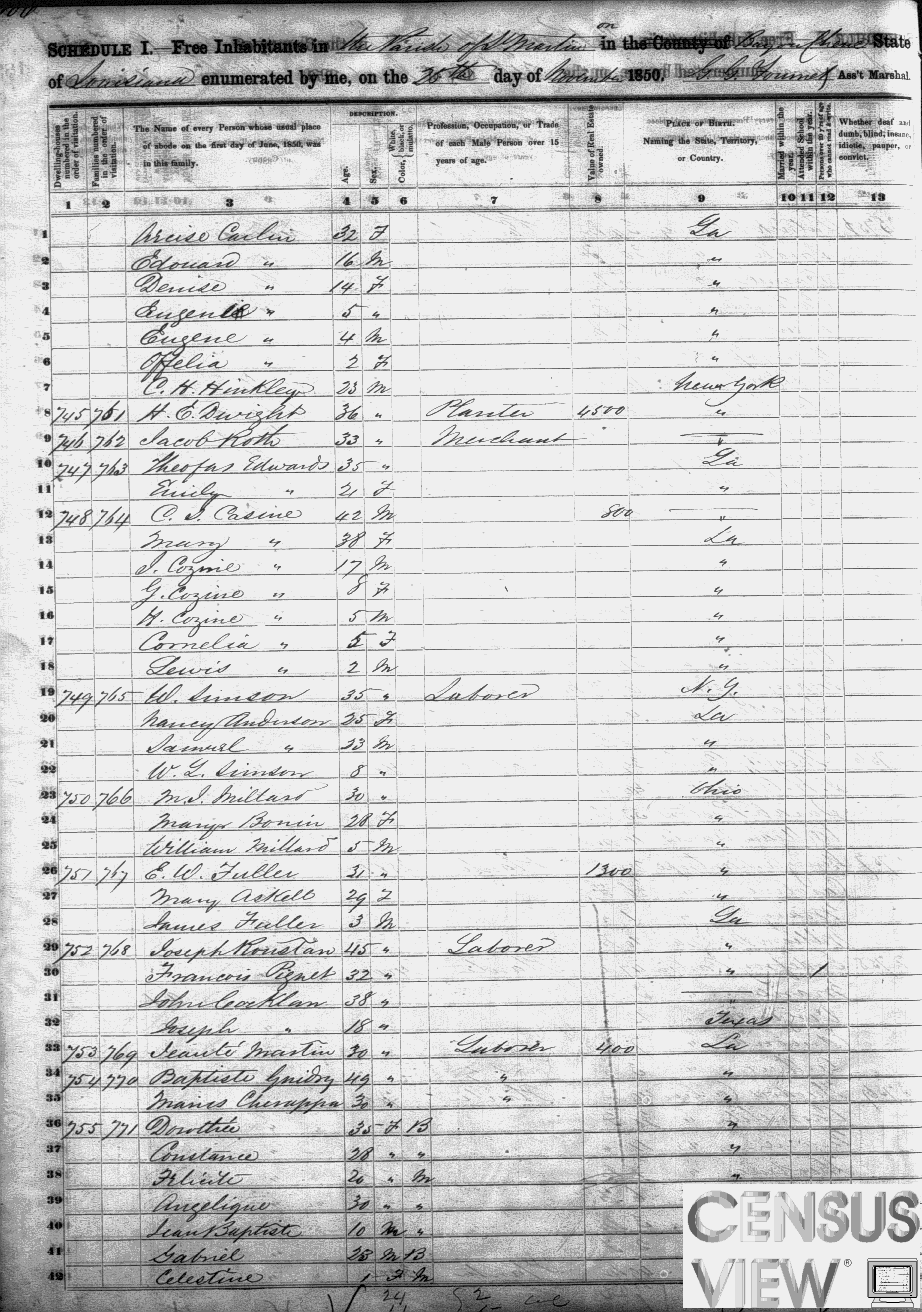 SCHEDULE I.—Free Inhabitants in the Parish of St Martin on in the County of State
of Louisiana enumerated by me, on the 25th day of November 1850. Ass't Marshal.
Dwelling-houses numbered in the order of visitation.
Families numbered in the order of visitation.
The Name of every Person whose usual place of abode on the first day of June, 1850, was in this family.
DESCRIPTION.
Age.
Sex.
White, black, or mulatto. Color,
Profession, Occupation, or Trade of each Male Person over 15 years of age.
Value of Real Estate owned
PLACE OF BIRTH. Naming the State, Territory, or Country.
Married within the year.
Attended School within the year.
Persons over 20 y'rs of age who cannot read & write.
Whether deaf and dumb, blind, insane, idiotic, pauper, or convict.
1 2 3 4 5 6 7 8 9 10 11 12 13
1 Arcise Carlin 32 F La
2 Edouard " 16 M "
3 Denise " 14 F "
4 Eugenie " 5 " "
5 Eugene " 4 M "
6 Offelia " 2 F "
7 C. H. Hinkley 23 M New York
8 745 761 H. E. Dwight 36 " Planter 4500 "
9 746 762 Jacob Roth 33 " Merchant
10 747 763 Theofas Edwards 35 " La
11 Emily " 21 F "
12 748 764 C. I. Casine 42 M 800
13 Mary " 38 F La
14 J. Cozine " 17 M "
15 G. Cozine " 8 F "
16 H. Cozine " 5 M "
17 Cornelia " 5 F "
18 Lewis " 2 M "
19 749 765 W. Simson 35 " Laborer N. Y.
20 Nancy Anderson 25 F La
21 Samuel " 23 M "
22 W. L. Simson 8 " "
23 750 766 M. J. Millard 30 " Ohio
24 Mary Bonin 28 F "
25 William Millard 5 M "
26 751 767 E. W. Fuller 31 " 1300 "
27 Mary Askell 29 F "
28 James Fuller 3 M La
29 752 768 Joseph Roustan 45 " Laborer "
30 Francois Pignet 32 " " /
31 John Cocklan 38 "
32 Joseph " 18 " Texas
33 753 769 Jeanté Martin 30 " Laborer 400 La
34 754 770 Baptiste Guidry 49 " " "
35 30 " " "
36 755 771 Dorothée 35 F B "
37 Constance 28 " " "
38 Felicite 20 " M "
39 Angelique 30 " "
40 Jean Baptiste 10 M "
41 Gabriel 23 M B
42 Celestine 1 F M
24
CENSUS VIEW®